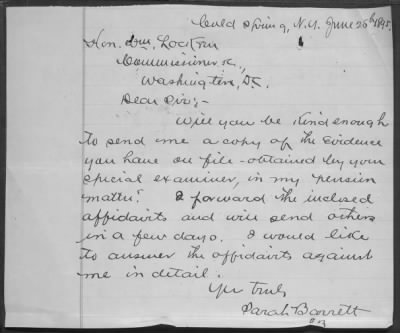 Could Spring, N.Y. June 25th 1895.
Hon. Wm. Lochren
Commissioner &c.,
Washington, D.C.
Dear Sir;-
Will you be kind enough
to send me a copy of the Evidence
you have on file - obtained by your
special examiner, in my pension
matter? I forward the inclosed
affidavits and will send others
in a few days. I would like
to answer the affidavits against
me in detail.
Yrs truly
Sarah Barrett